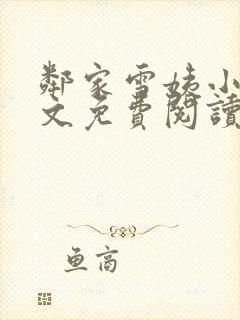 鄰家雪姨小
文免費閱讀
鱼高